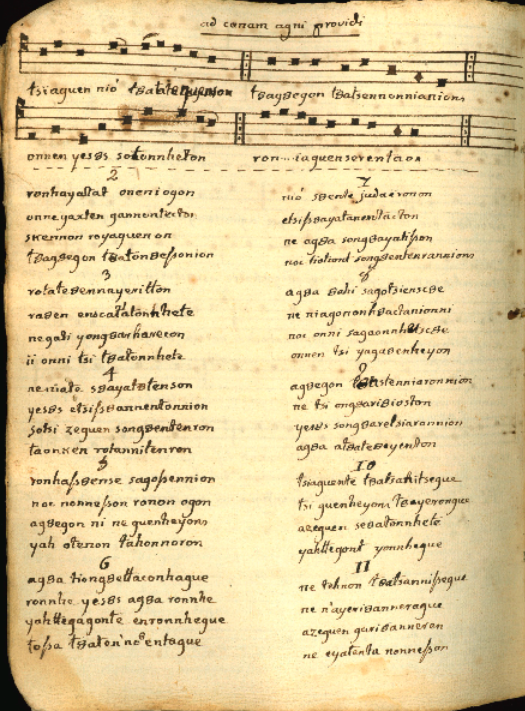 ad cœnam agni providi
tsiaguen nió t8atate
t8ag8egon t8atsennonnianions
onnen yes8s sotonnheton
ron...iaguenserentaon
2
ronhayattat oneni ogon
onnegarten gannontecton
skennon royaguenon
t8ag8egon t8atonde8onion
3
rotate8ennayeritton
ra8en onnhete
negati yong8arharecon
ii onni tsi t8atonnhete
4
ne niate s8ayat8tenson
yes8s etsiss8annentonnion
sotsi zeguen song8entenron
taonxen rotannitenron
5
ronhass8ense sagossennion
noc nonnesson ronon ogon
ag8egon ni ne guenheyons
yah otenon tahonnoron
6
ag8a tiong8ettaconhague
ronnhe yes8s ag8a ronnhe
yahttegagonte enronnhegue
tossa t8aton entague
7
nió s8ente judaeronon
etsiss8ayatanentacton
ne ag8a song8ayatisson
noc tiotiont song8entenrannions
8
ag8a 8ohi sagotsiensc8e
ne niagononh8actanionni
noc onni sagaonnhetsc8e
onnen tsi yaga8enheyon
9
ag8egon
ne tsi ong8ari8ioston
yes8s song8aretsiaronnion
ag8a at8ate8eyenton
10
tsiaguente t8atsahitsegue
tsi guenheyons t8ayerongue
azeguen se8atonnheté
yahttegont yonnhegue
11
ne tehnon t8atsannissegue
ne n'ayeri8anneragué
azeguen gari8anneron
ne eyatenta nonnesson